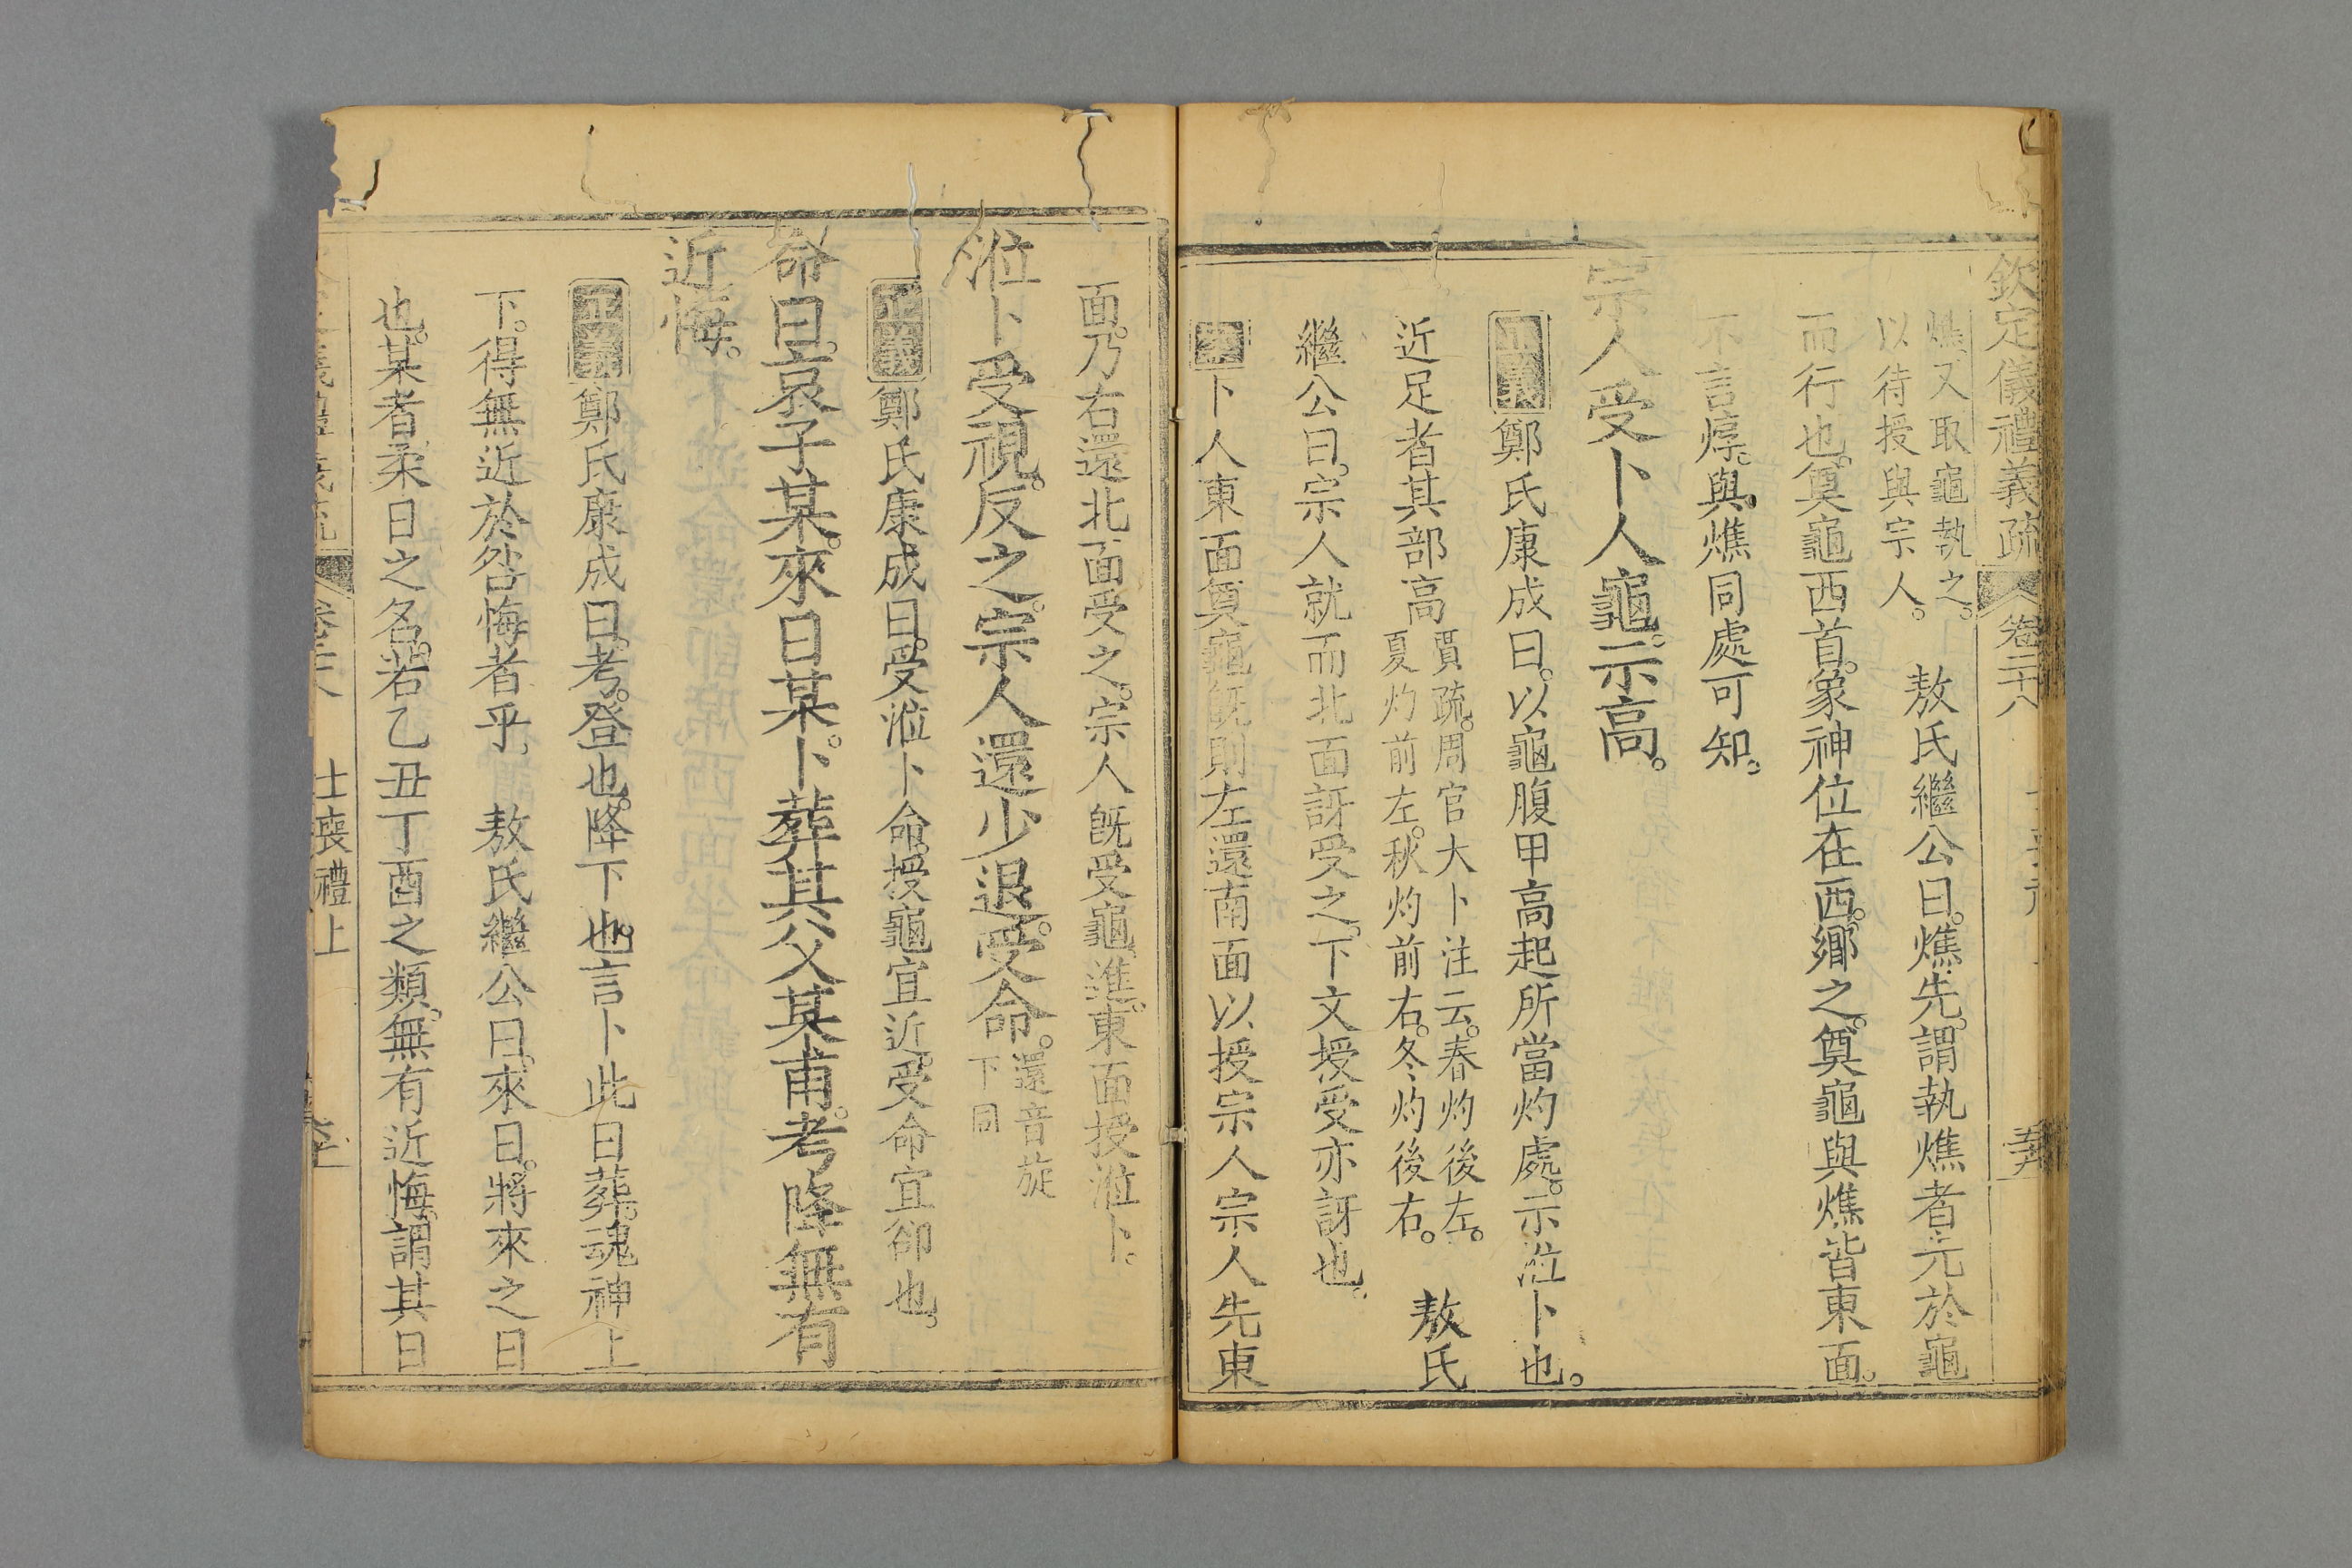 欽定儀禮義疏 卷二十八
燋又取龜執之。
以待授與宗人。
敖氏繼公曰。燋先。謂執燋者先於龜
而行也。奠龜西首。象神位在西。鄉之。奠龜與燋皆東面。
不言焞。與燋同處可知。
宗人受卜人龜。示高。
正義鄭氏康成曰。以龜腹甲高起所當灼處。示涖卜也。
近足者其部高
賈疏。周官大卜注云。春灼後左。
夏灼前左。秋灼前右。冬灼後右。
敖氏
繼公曰。宗人就而北面訝受之。下文授受亦訝也。
卜人東面奠龜。既則左還南面以授宗人。宗人先東
面。乃右還北面受之。宗人旣受龜。進。東面授涖卜。
涖卜受視。反之。宗人還少退。受命。
還音旋
下同
正義鄭氏康成曰。受涖卜命。授龜宜近。受命宜卻也。
命曰。哀子某。來日某。卜葬其父某甫。考降無有
近悔。
正義鄭氏康成曰。考。登也。降。下也。言卜此日葬。魂神上
下。得無近於咎悔者乎。 敖氏繼公曰。來日。將來之日
也。某者柔日之名。若乙丑丁酉之類。無有近悔。謂其日
士喪禮上